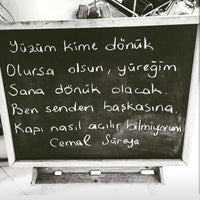 Yüzüm kime dönük
Olursa olsun, yüreğim
Sana dönük olacak.
Ben senden başkasına.
Kapı nasıl açılır bilmiyorum
Cemal Süreya